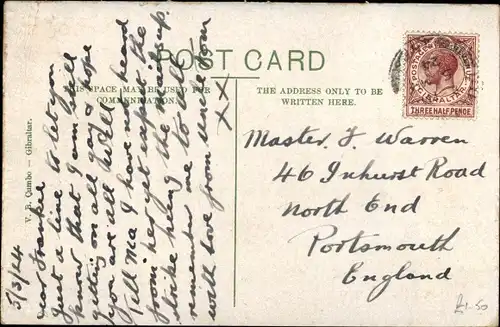 POST CARD
THIS SPACE MAY BE USED FOR
COMMUNICATION.
THE ADDRESS ONLY TO BE
WRITTEN HERE.
V. B. Cumbo — Gibraltar.
5/3/24
Dear Frankie
Just a line to let you
know that I am still
getting on all gay & hope
you are all well
Tell Ma I have not heard
from her yet expect to the
strike being the mails up.
remember me to all
with love from Uncle Tom
XX
Master F. Warren
46 Inhurst Road
North End
Portsmouth
England
POSTAGE & REVENUE
GIBRALTAR
THREE HALF PENCE
£1-50